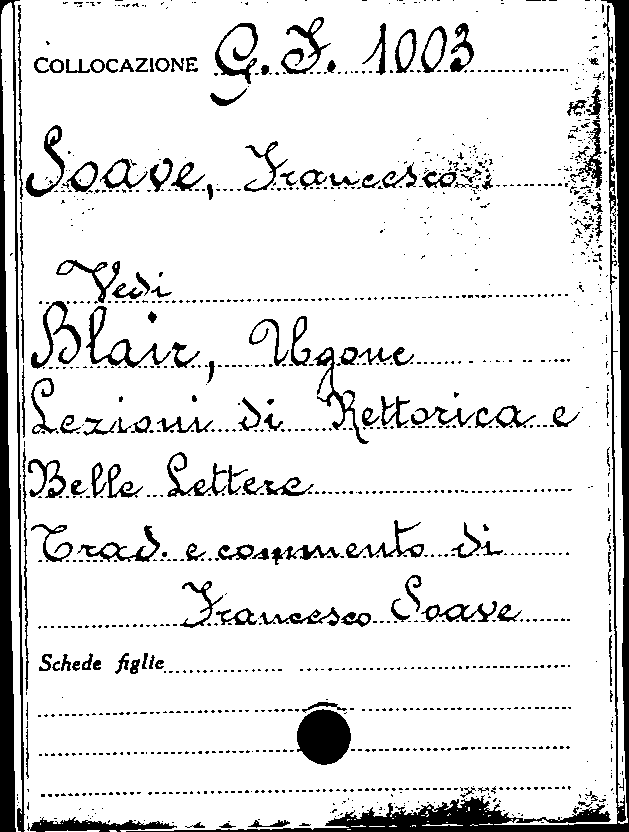 COLLOCAZIONE G. F. 1003
Soave, Francesco
Vedi
Blair, Ugone
Lezioni di Rettorica e
Belle Lettere
Trad. e commento di
Francesco Soave
Schede figlie